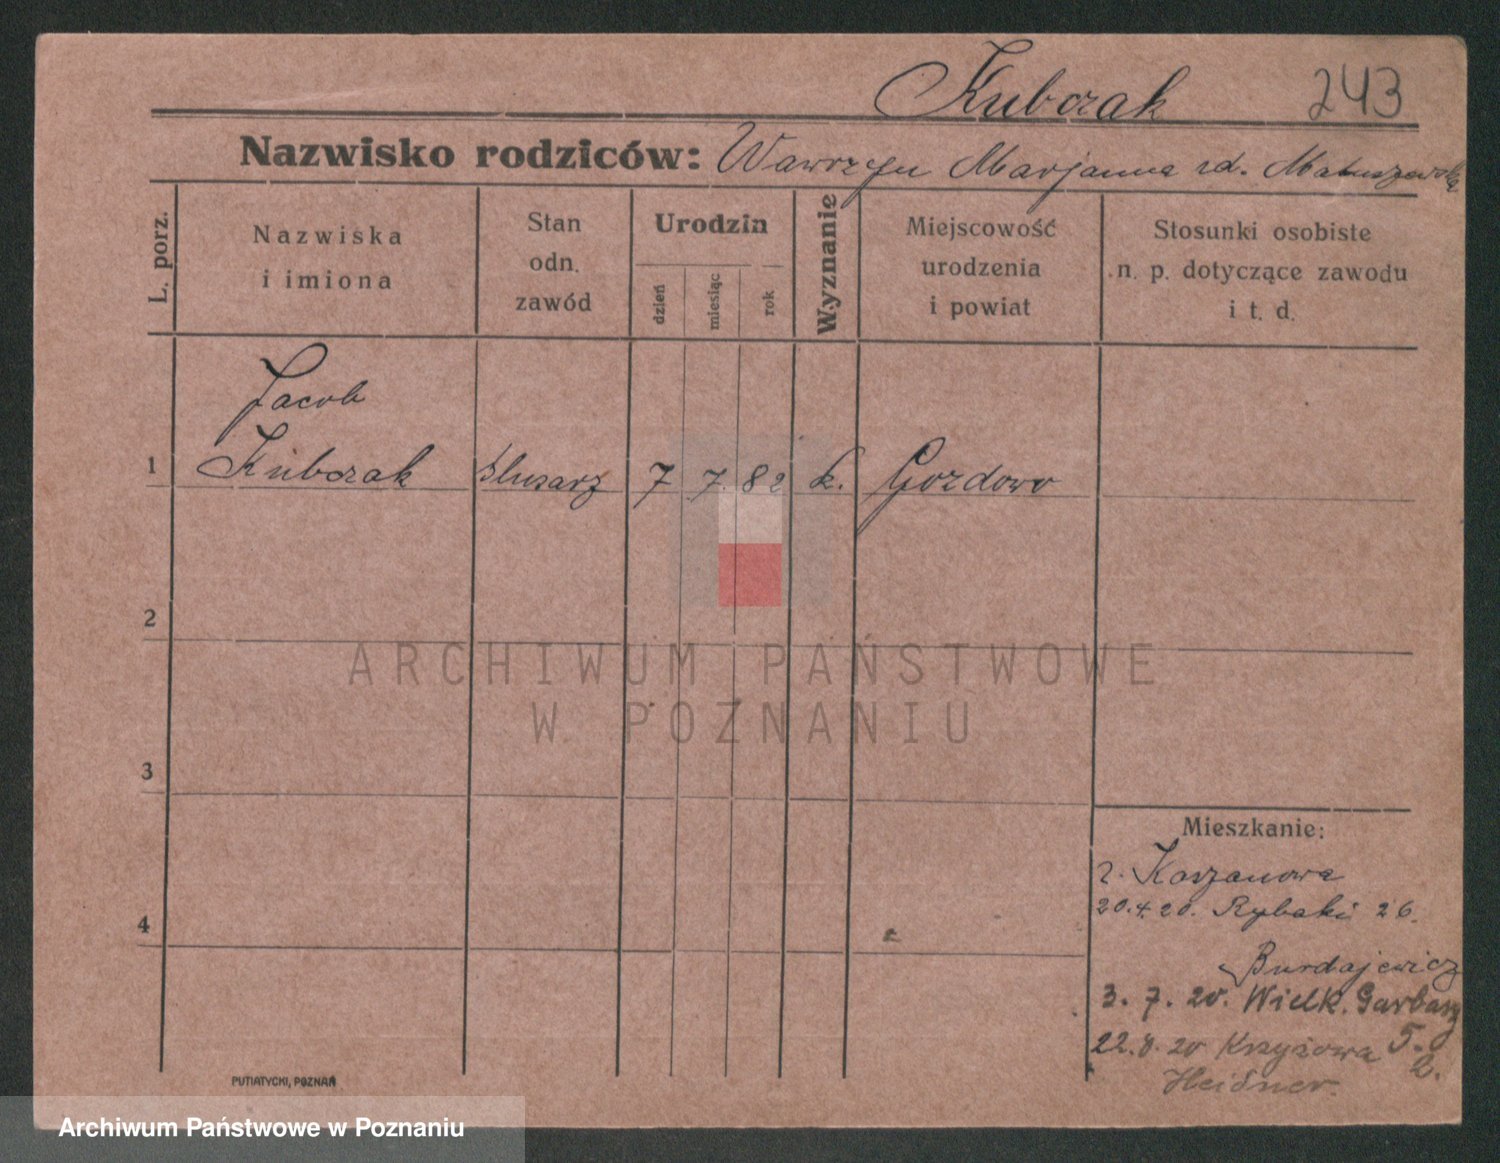 Kubczak 243
Nazwisko rodziców: Wawrzyn Marjanna rd. Matuszewska
L. porz.
Nazwiska
i imiona
Stan
odn.
zawód
Urodzin
dzień
miesiąc
rok
Wyznanie
Miejscowość
urodzenia
i powiat
Stosunki osobiste
n. p. dotyczące zawodu
i t. d.
Jacob
1 Kubczak ślusarz 7 7 82 k. Gozdowo
2
3
4
Mieszkanie:
20.4.20. Rybaki 26.
Burdajewicz
3. 7. 20. Wielk. Garbary
5.
22.8.20 Krzyżowa 2.
Heidner.
PUTIATYCKI, POZNAŃ
ARCHIWUM PAŃSTWOWE
W POZNANIU
Archiwum Państwowe w Poznaniu